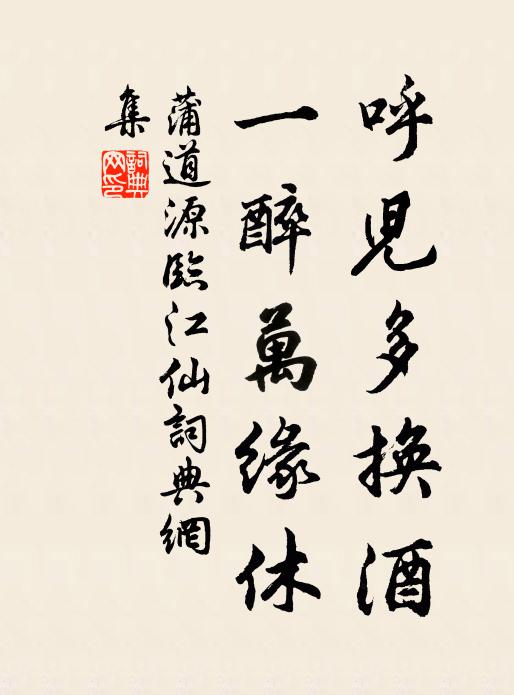 呼兒多換酒
一醉萬緣休
蒲道源臨江仙詞典網
集
詞典網印